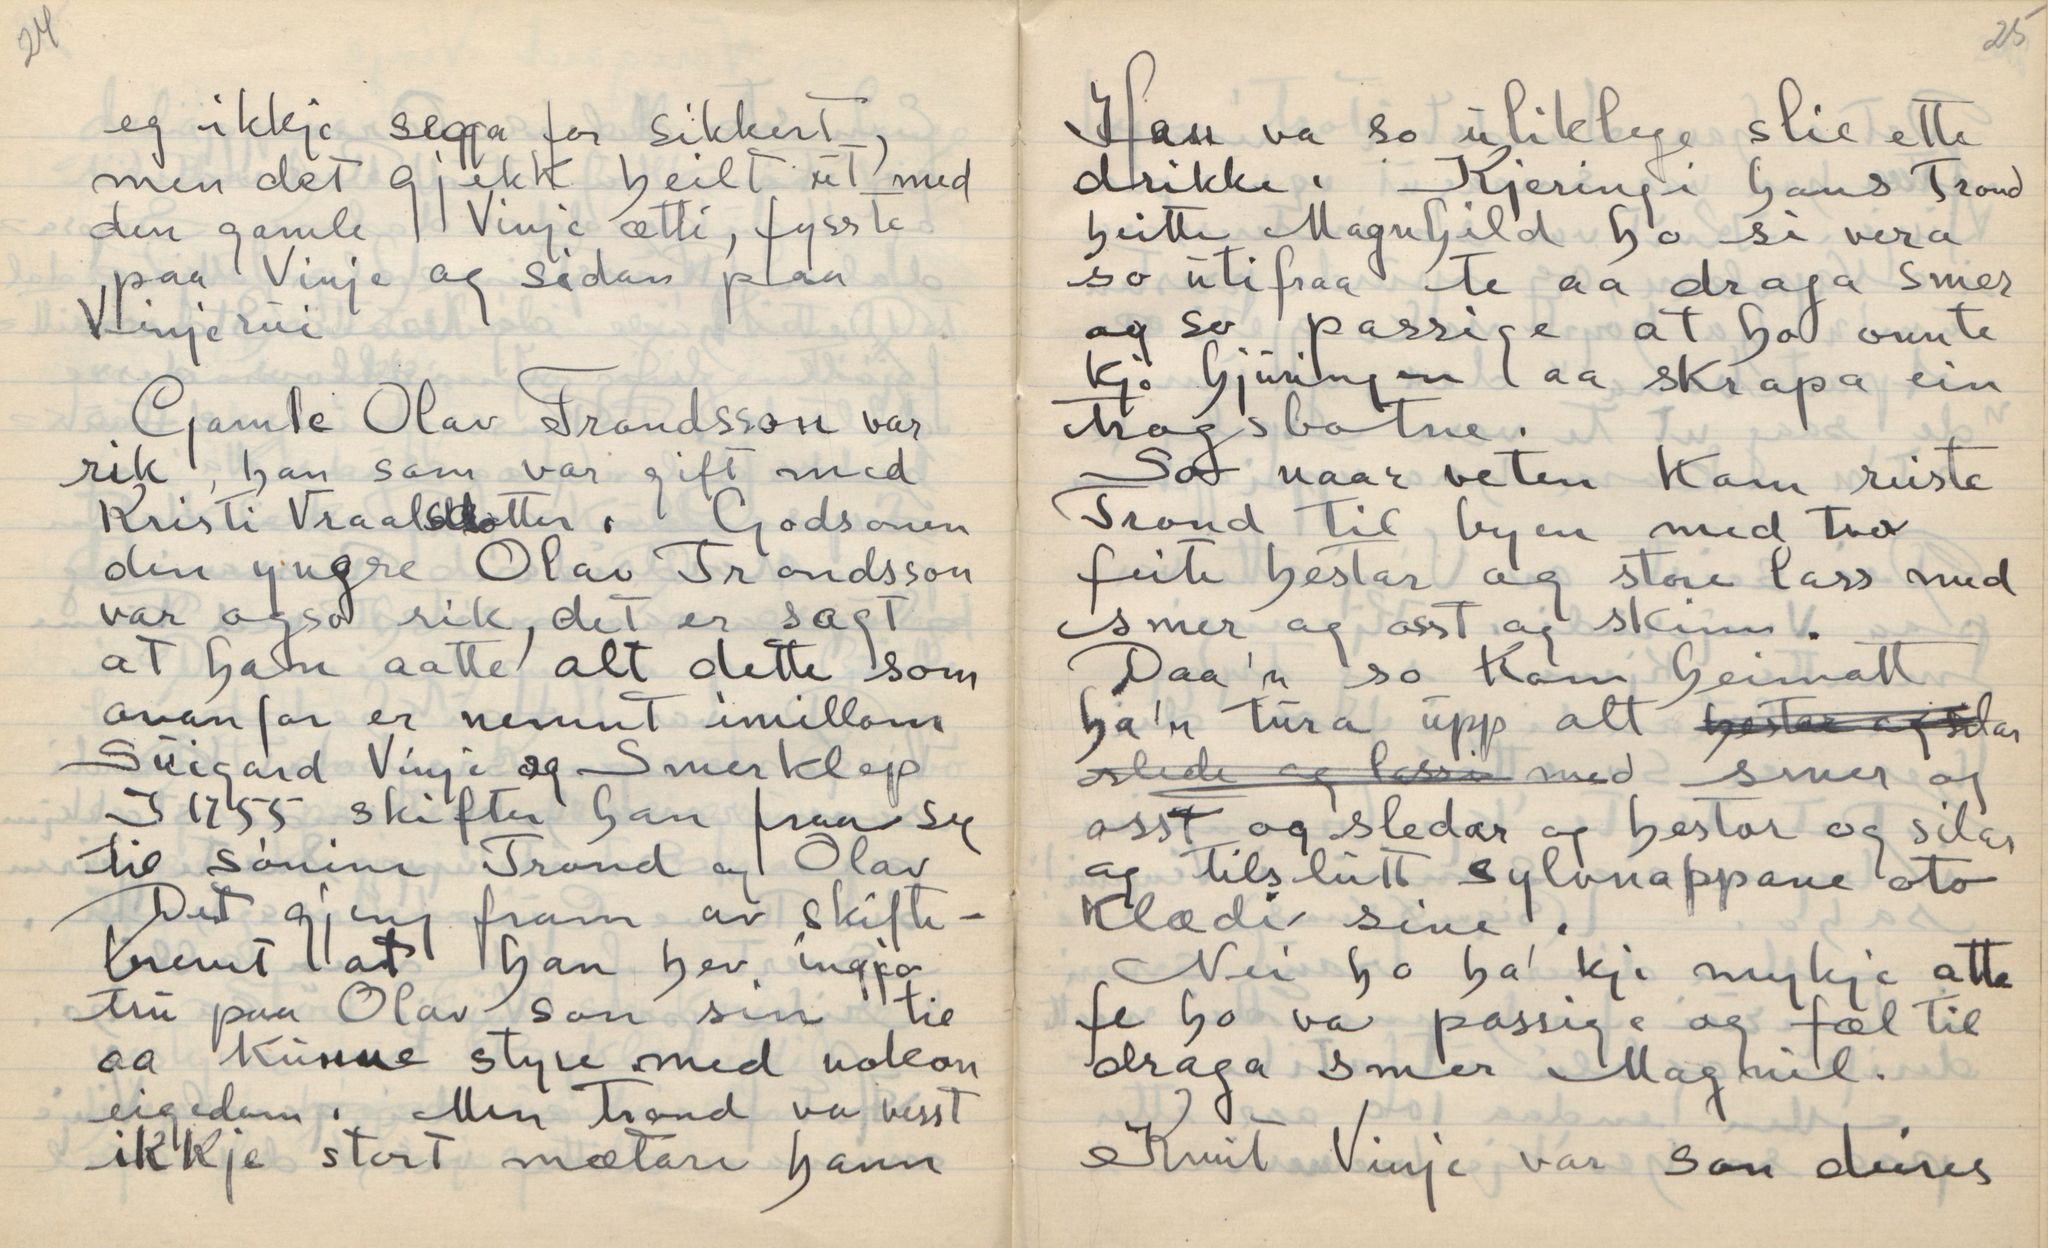 24
eg ikkje segja for sikkert,
men det gjekk heilt ut med
den gamle Vinje ætti, fysste
paa Vinje og sidan paa
Vinjerui
Gamle Olav Trondsson var
rik, han som var gift med
Kristi Vraalsdotter. Godsonen
den yngre Olav Trondsson
var ogso rik, det er sagt
at han aatte alt dette som
ovanfor er nemnt imillom
Suigard Vinje og Smerklep
I 1755 skifter han fraa seg
til sønine Trond og Olav
Det gjeng fram av skifte-
brevet at han hev ingja
tru paa Olav son sin til
aa kunne styre med nokon
eigedom. Men Trond va visst
ikkje stort mætare hann
25
Han va so uliklege slic ette
drikke. Kjeringi hans Trond
heitte Magnhild ho si vera
so utifraa te aa draga smer
og so passige at ho onnte
kje hjuringen aa skrapa ein
trogsbotne.
So naar veten kom reiste
Trond til byen med tvo
feite hestar og store lass med
smer og osst og skinn.
Daa'n so kom heimatt
ha'n tura upp alt hestar og silar
slede og lasse med smer og
osst og sledar og hestar og silar
og tilslutt sylvnappane oto
klædi sine.
Nei ho ha' kje mykje atte
fe ho va passige og fæl til
draga smer Magnil.
Knut Vinje var son deires